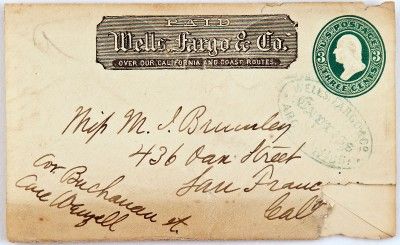 PAID
Wells, Fargo & Co.
OVER OUR CALIFORNIA AND COAST ROUTES.
U.S. POSTAGE
THREE CENTS
WELLS FARGO & CO
Miss M. J. Brumley
436 Oak Street
San Franc
Cal
Cor Buchanan St.
Care Wenzell